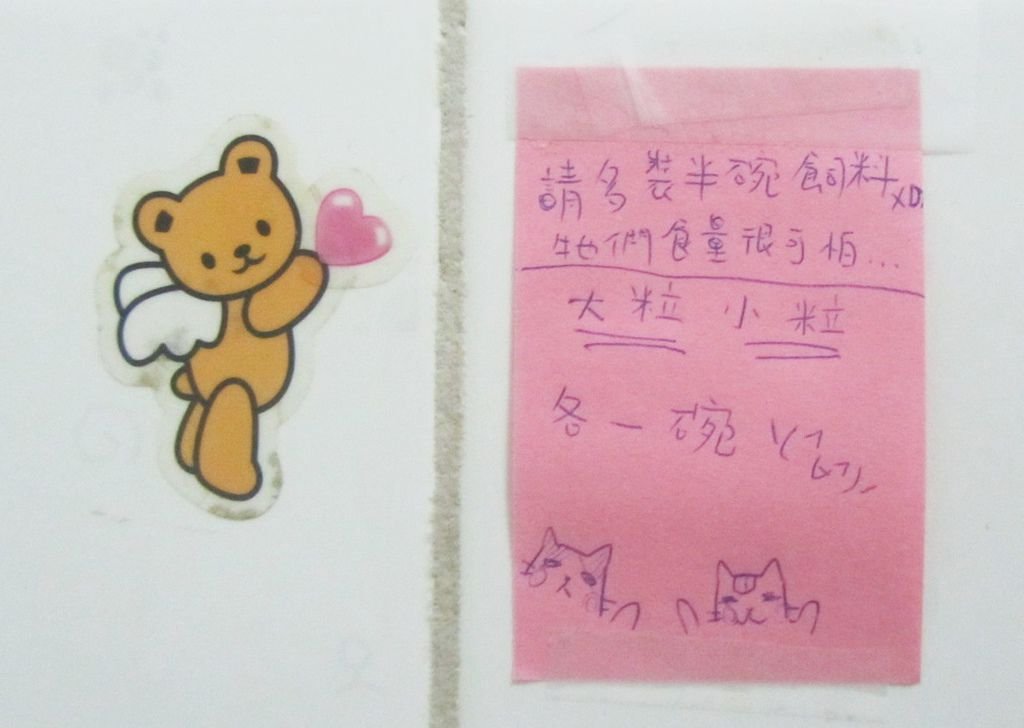 請多裝半碗飼料XD
牠們食量很可怕...
大粒 小粒
各一碗